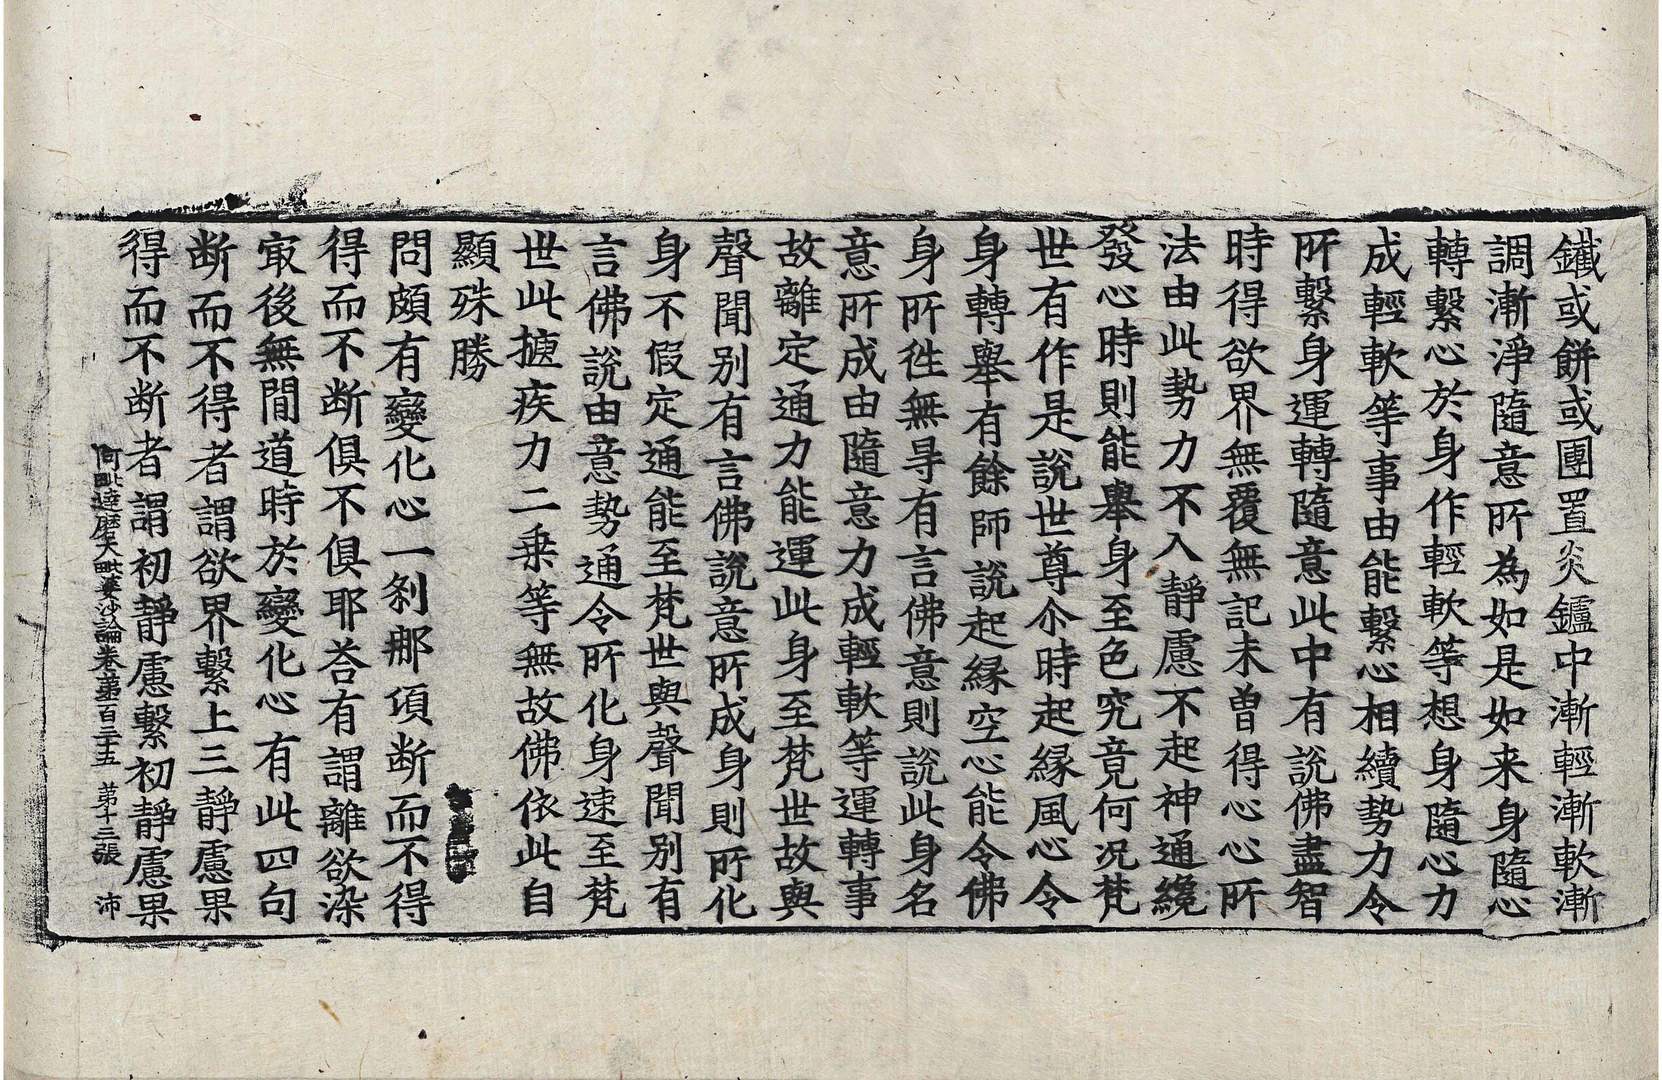 鐵或餅或團置炎鑪中漸輕漸軟漸
調漸淨隨意所為如是如来身隨心
轉繫心於身作輕軟等想身隨心力
成輕軟等事由能繫心相續勢力令
所繫身運轉隨意此中有說佛盡智
時得欲界無覆無記未曾得心心所
法由此勢力不入靜慮不起神通纔
發心時則能舉身至色究竟何況梵
世有作是說世尊尒時起緣風心令
身轉舉有餘師說起緣空心能令佛
身所徃無㝵有言佛意則說此身名
意所成由隨意力成輕軟等運轉事
故離定通力能運此身至梵世故與
聲聞別有言佛說意所成身則所化
身不假定通能至梵世與聲聞別有
言佛說由意勢通令所化身速至梵
世此摭疾力二乗等無故佛依此自
顯殊勝
問頗有變化心一剎那頃断而不得
得而不断俱不俱耶荅有謂離欲染
冣後無間道時於變化心有此四句
断而不得者謂欲界繫上三靜慮果
得而不断者謂初靜慮繫初靜慮果
阿毗達磨大毗婆沙論卷第百三十五 第十二張 沛